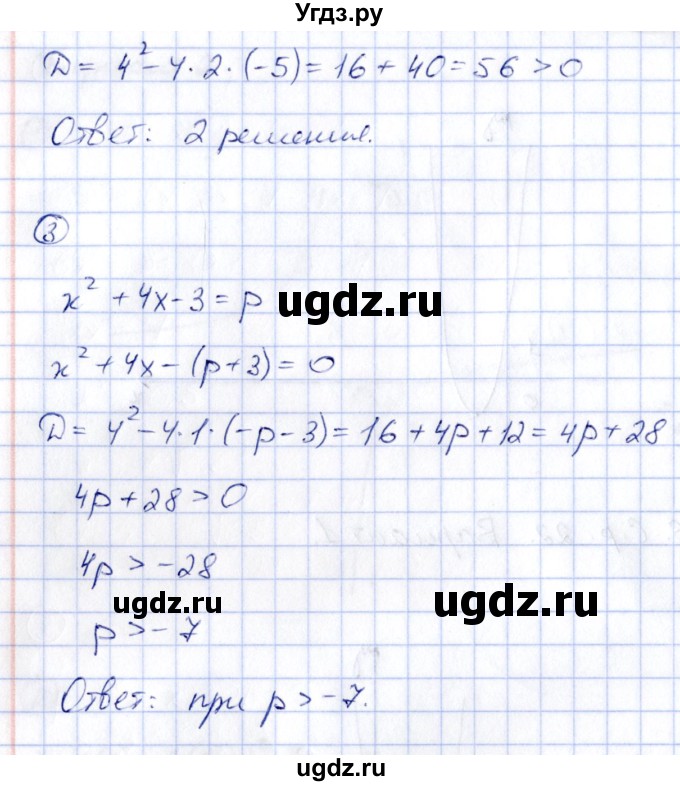 Угдз.ру
D = 4² - 4·2·(-5) = 16 + 40 = 56 > 0
Ответ: 2 решения.
③
x² + 4x - 3 = p
ugdz.ru
x² + 4x - (p + 3) = 0
D = 4² - 4·1·(-p - 3) = 16 + 4p + 12 = 4p + 28
4p + 28 > 0
4p > -28
ugdz.ru
ugdz.ru
p > -7
Ответ: при p > -7.
ugdz.ru